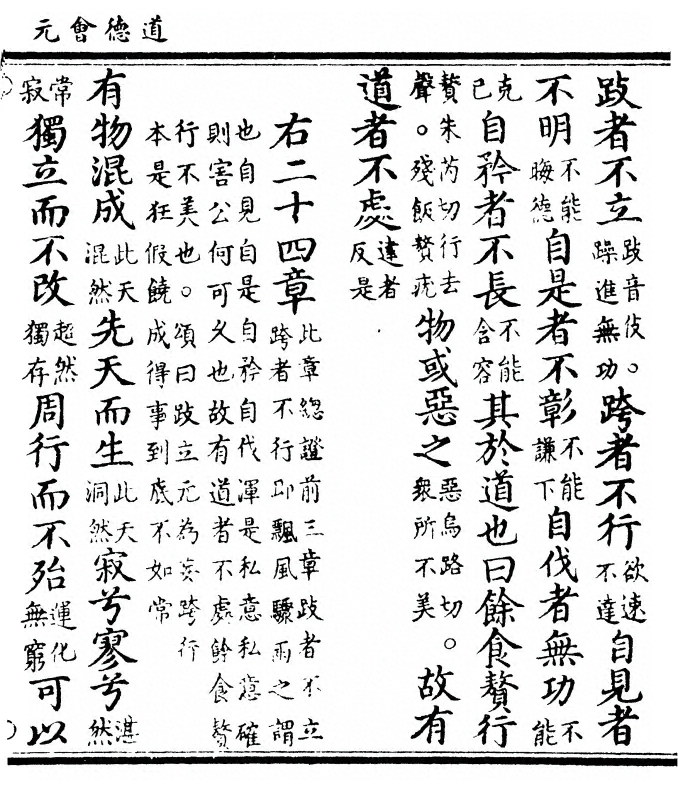 道德會元
跂者不立跂音伎。躁進無功跨者不行欲速不達自見者
不明不能晦德自是者不彰不能謙下自伐者無功不能
克己自矜者不長不能含容其於道也曰餘食贅行
贅朱芮切行去聲。殘飯贅疣物或惡之惡烏路切。衆所不美故有
道者不處違者反是
右二十四章此章總證前三章跂者不立
跨者不行即飄風驟雨之謂
也自見自是自矜自伐渾是私意私意確
則害公何可久也故有道者不處餘食贅
行不美也。頌曰跂立元為妄跨行
本是狂假饒成得事到底不如常
有物混成此天混然先天而生此天洞然寂兮寥兮湛然
常寂獨立而不改超然獨存周行而不殆運化無窮可以